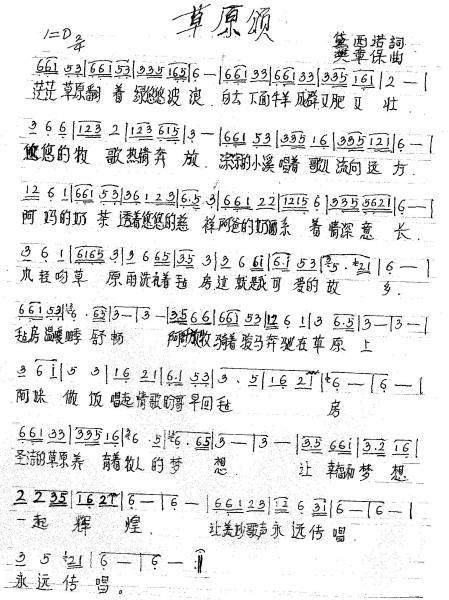 草原颂
1=D 2/4
西洛詞
樊車保曲
661 53 |661 53|335 165|6 —|661 33|661 33|335 161|2 —|
茫茫草原翻着绿悠悠波浪 白云下面牛羊成群又肥又壮
3 6 6|123 2|123 615|3 —|661 53|335 16|335 121|6 —|
悠悠的牧歌热情奔放. 淙淙的小溪唱着歌儿流向远方.
12 6 1|661 53|36 1 2 3|6.5 3|661 22|1215 6|335 5621|6 —|
阿妈的奶茶透着悠悠的慈祥阿爸的奶酒系着情深意长.
3 6 1|6165 3|3 6 65|35 3|3 6 6i|6.i 53|5. 21|6 —|
风轻吻草原雨洗着毡房这就是我可爱的故乡.
661 53|6 . 65|3—|3—|35 6 6|661 53|12 6 1|3 6.5|3—|3—|
毡房温暖舒畅 阿骑着骏马奔驰在草原上
3 6 i|5 3|16 21|6.1 53|3 . 5|16 21|6 —|6 —|
阿妹做饭唱起情歌盼哥早回毡房
661 33|335 16|6 . 5|6. 65|3 —|3 —|3.5 66i|3.2 16|
圣洁的草原养育着牧人的梦想. 让幸福和梦想
2 2 35|16 2|6—|6—|661 23|12 6 31|6—|6—|
一起辉煌. 让美妙歌声永远传唱.
3 5 21|6 —|6 — :‖
永远传唱.